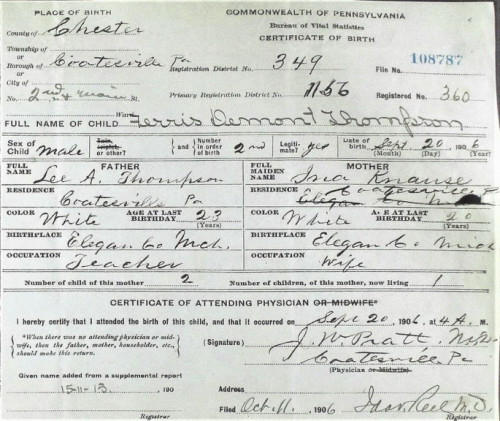 PLACE OF BIRTH
COMMONWEALTH OF PENNSYLVANIA
Bureau of Vital Statistics
CERTIFICATE OF BIRTH
County of Chester
Township of
or
Borough of Coatesville Pa
or
City of
Registration District No. 349
File No. 108787
No. 2nd & Main St.
Primary Registration District No. 1156
Registered No. 360
Ward
FULL NAME OF CHILD Ferris Demont Thompson
Sex of Child Male
Twin, triplet, or other?
and
Number in order of birth 2nd
Legitimate? yes
Date of birth Sept. 20, 1906
(Month) (Day) (Year)
FATHER
FULL NAME Lee A. Thompson
RESIDENCE Coatesville Pa
COLOR White
AGE AT LAST BIRTHDAY 23
(Years)
BIRTHPLACE Elegan Co Mch.
OCCUPATION Teacher
MOTHER
FULL MAIDEN NAME
RESIDENCE Coatesville
Elegan Co
COLOR White
AGE AT LAST BIRTHDAY 20
(Years)
BIRTHPLACE Elegan Co Mich
OCCUPATION Wife
Number of child of this mother 2
Number of children, of this mother, now living 1
CERTIFICATE OF ATTENDING PHYSICIAN OR MIDWIFE*
I hereby certify that I attended the birth of this child, and that it occurred on Sept 20 1906, at 4 A. M.
*When there was no attending physician or midwife, then the father, mother, householder, etc., should make this return.
(Signature) J. W. Pratt
Coatesville, Pa
(Physician or Midwife)
Given name added from a supplemental report
15-11-13. 190
Address
Filed Oct. 11, 1906
M. D.
Registrar
Registrar